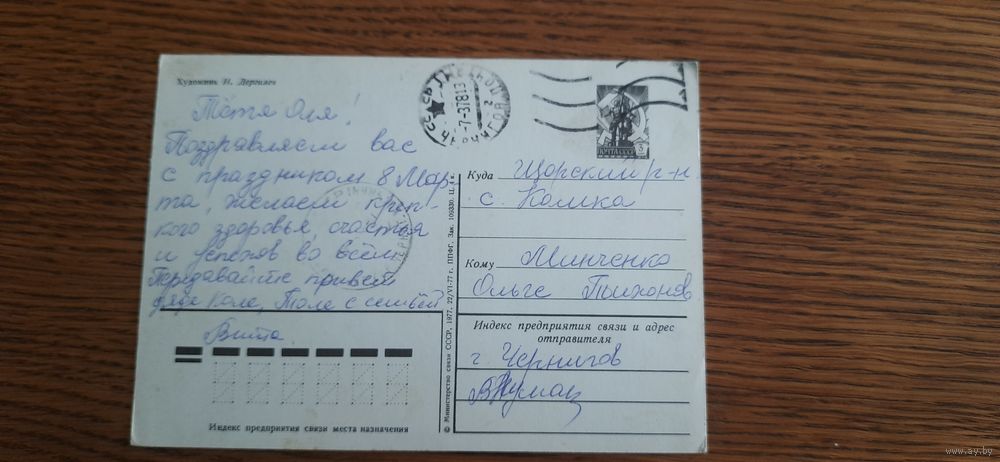 Художник И. Дергилев
Тётя Оля!
Поздравляем вас
с праздником 8 Мар-
та, желаем креп-
кого здоровья, счастья
и успехов во всём
Передавайте привет
дяде Коле, Толе с семьёй
Вита
Индекс предприятия связи места назначения
© Министерство связи СССР, 1977. 22/VI-77 г. ППФГ. Зак. 109330. Ц. 4 к.
ПОЧТА СССР
Куда Щорский р-н
с. Камка
Кому Минченко
Ольге Тихонов
Индекс предприятия связи и адрес
отправителя
г. Чернигов
www.ay.by